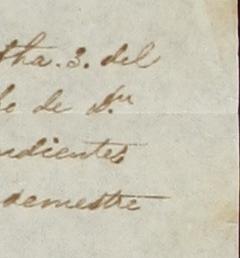 tha. 3. del
de de d.n
ndientes
demestre